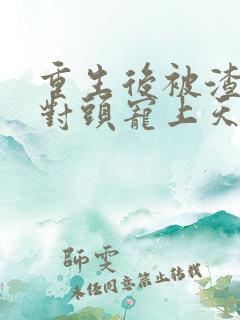 重生後被渣
對頭寵上天
師雯
未經同意禁止轉載